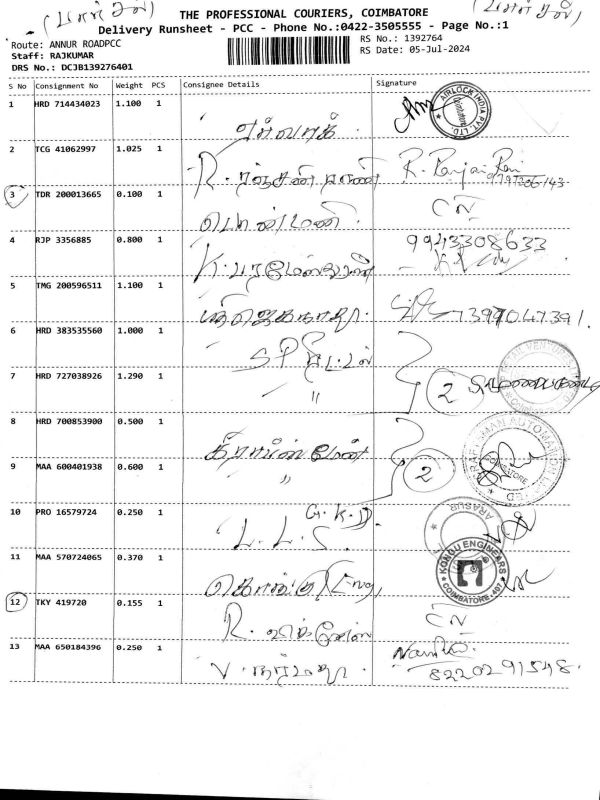 (பார்சல்)
THE PROFESSIONAL COURIERS, COIMBATORE
Delivery Runsheet - PCC - Phone No.:0422-3505555 - Page No.:1
Route: ANNUR ROADPCC
RS No.: 1392764
Staff: RAJKUMAR
RS Date: 05-Jul-2024
DRS No.: DCJB139276401
S No Consignment No Weight PCS Consignee Details Signature
1 HRD 714434023 1.100 1
AIRLOCK INDIA PVT. LTD.
ஏர்லாக்
2 TCG 41062997 1.025 1
R. ரஞ்சன் ராணி R. Ranjani Rani
3 TDR 200013665 0.100 1
பொன்மணி
4 RJP 3356885 0.800 1 9943308633
K. பரமேஸ்வரன்
5 TMG 200596511 1.100 1
7397047391.
6 HRD 383535560 1.000 1
SP ரீட்டல்
7 HRD 727038926 1.290 1
" 2
8 HRD 700853900 0.500 1
கிராப்ஸ் மேன்
9 MAA 600401938 0.600 1
" 2
COIMBATORE
10 PRO 16579724 0.250 1 G.K.D.
L.L.S.
ARASUR
11 MAA 570724065 0.370 1
KONGU ENGINEARS
COIMBATORE
12 TKY 419720 0.155 1
R. விக்னேஷ்
13 MAA 650184396 0.250 1
V. நர்மதா. 8220291548.